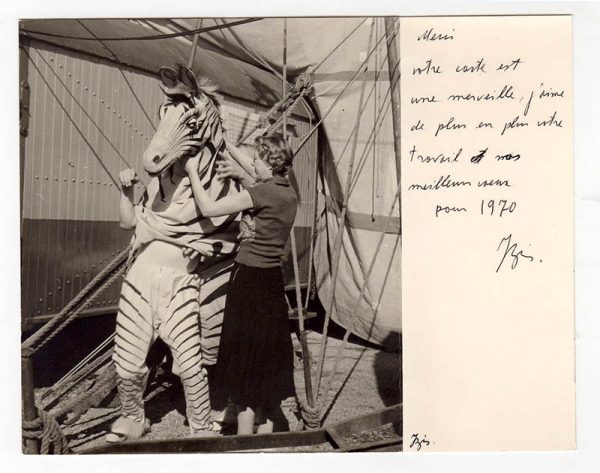 Merci
votre carte est
une merveille, j'aime
de plus en plus votre
travail et nos
meilleurs voeux
pour 1970
Izis.
Izis.